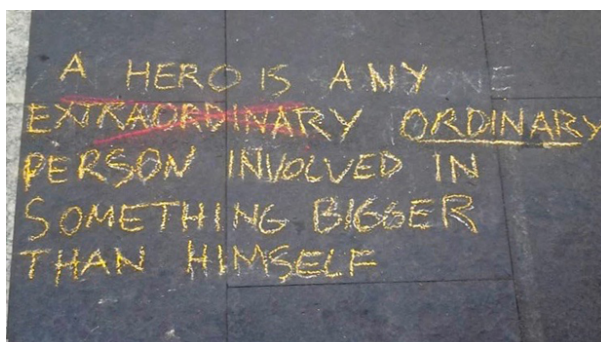 A HERO IS ANYONE
EXTRAORDINARY ORDINARY
PERSON INVOLVED IN
SOMETHING BIGGER
THAN HIMSELF